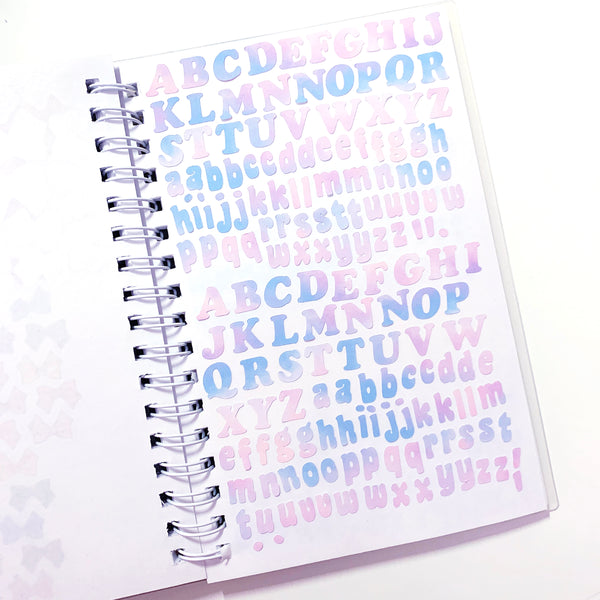 ABCDEFGHIJ
KLMNNOPQR
STTUVWXYZ
aabbccddeeffggh
hiijjkkllmmnnoo
ppqqrrssttuuvvw
wxxyyzz!!.
ABCDEFGHI
JKLMNNOP
QRSTTUVW
XYZaabbccdde
effgghhiijjkkllm
mnnooppqqrrsst
tuuvvwwxxyyzz!
..!